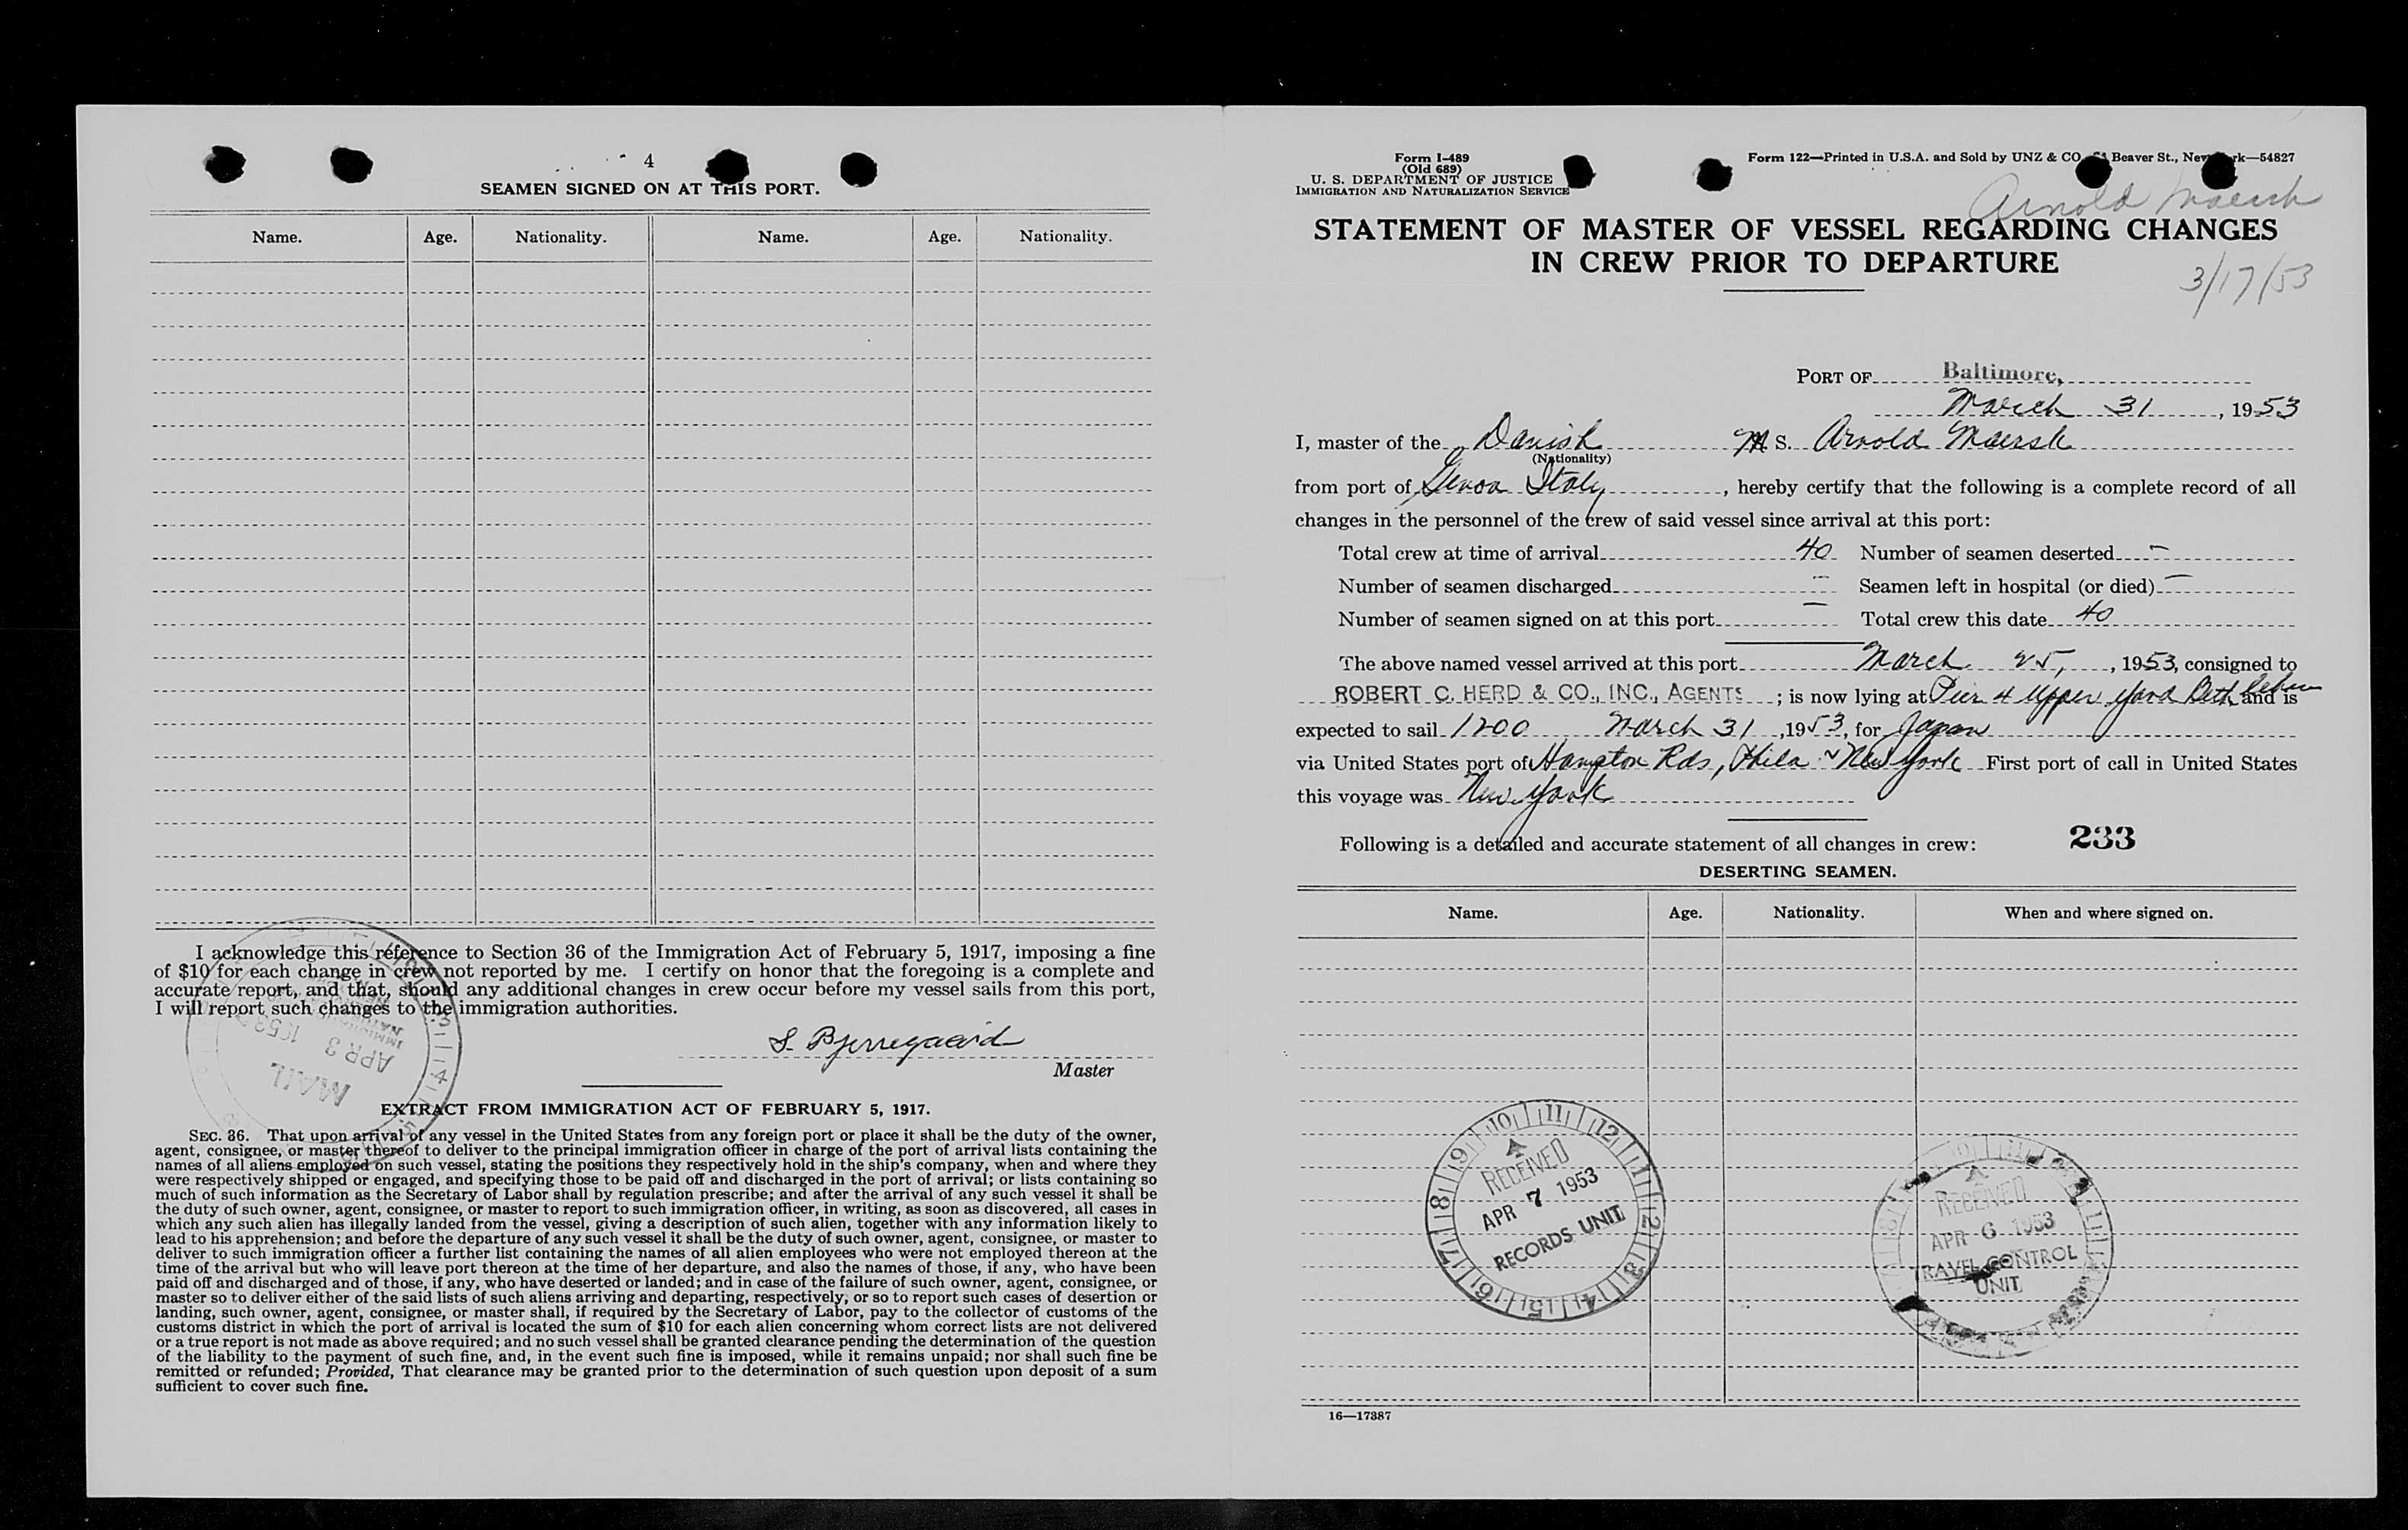 4
SEAMEN SIGNED ON AT THIS PORT.
Name. Age. Nationality. Name. Age. Nationality.
I acknowledge this reference to Section 36 of the Immigration Act of February 5, 1917, imposing a fine
of $10 for each change in crew not reported by me. I certify on honor that the foregoing is a complete and
accurate report, and that, should any additional changes in crew occur before my vessel sails from this port,
I will report such changes to the immigration authorities.
MAIL
APR 3 1953
S. Bjerregaard
Master
EXTRACT FROM IMMIGRATION ACT OF FEBRUARY 5, 1917.
SEC. 36. That upon arrival of any vessel in the United States from any foreign port or place it shall be the duty of the owner,
agent, consignee, or master thereof to deliver to the principal immigration officer in charge of the port of arrival lists containing the
names of all aliens employed on such vessel, stating the positions they respectively hold in the ship's company, when and where they
were respectively shipped or engaged, and specifying those to be paid off and discharged in the port of arrival; or lists containing so
much of such information as the Secretary of Labor shall by regulation prescribe; and after the arrival of any such vessel it shall be
the duty of such owner, agent, consignee, or master to report to such immigration officer, in writing, as soon as discovered, all cases in
which any such alien has illegally landed from the vessel, giving a description of such alien, together with any information likely to
lead to his apprehension; and before the departure of any such vessel it shall be the duty of such owner, agent, consignee, or master to
deliver to such immigration officer a further list containing the names of all alien employees who were not employed thereon at the
time of the arrival but who will leave port thereon at the time of her departure, and also the names of those, if any, who have been
paid off and discharged and of those, if any, who have deserted or landed; and in case of the failure of such owner, agent, consignee, or
master so to deliver either of the said lists of such aliens arriving and departing, respectively, or so to report such cases of desertion or
landing, such owner, agent, consignee, or master shall, if required by the Secretary of Labor, pay to the collector of customs of the
customs district in which the port of arrival is located the sum of $10 for each alien concerning whom correct lists are not delivered
or a true report is not made as above required; and no such vessel shall be granted clearance pending the determination of the question
of the liability to the payment of such fine, and, in the event such fine is imposed, while it remains unpaid; nor shall such fine be
remitted or refunded; Provided, That clearance may be granted prior to the determination of such question upon deposit of a sum
sufficient to cover such fine.
Form I-489
(Old 689)
U. S. DEPARTMENT OF JUSTICE
IMMIGRATION AND NATURALIZATION SERVICE
Form 122—Printed in U.S.A. and Sold by UNZ & CO. Beaver St., New York—54827
Arnold Maersk
STATEMENT OF MASTER OF VESSEL REGARDING CHANGES
IN CREW PRIOR TO DEPARTURE
3/17/53
PORT OF Baltimore,
March 31, 1953
I, master of the Danish M S. Arnold Maersk
(Nationality)
from port of Genoa Italy, hereby certify that the following is a complete record of all
changes in the personnel of the crew of said vessel since arrival at this port:
Total crew at time of arrival 40 Number of seamen deserted –
Number of seamen discharged – Seamen left in hospital (or died) –
Number of seamen signed on at this port – Total crew this date 40
The above named vessel arrived at this port March 25, 1953, consigned to
ROBERT C. HERD & CO., INC., AGENTS; is now lying at Pier 4 Upper Yard Bethlehem and is
expected to sail 1200 March 31, 1953, for Japan
via United States port of Hampton Rds, Phila & New York First port of call in United States
this voyage was New York
Following is a detailed and accurate statement of all changes in crew: 233
DESERTING SEAMEN.
Name. Age. Nationality. When and where signed on.
10 11 12 1 2 3 4 5 6 7 8 9
A
RECEIVED
APR 7 1953
RECORDS UNIT
A
RECEIVED
APR 6 1953
TRAVEL CONTROL
UNIT
16—17387